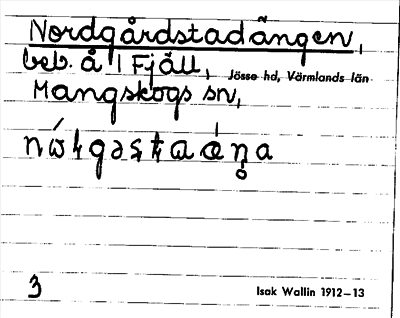 Nordgårdstadängen,
beb. å 1 Fjäll, Jösse hd, Värmlands län
Mangskogs sn,
3 Isak Wallin 1912–13